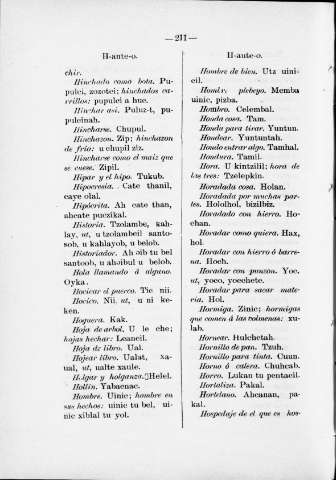 —211—
H-ante-o.
chir.
Hinchado como bota. Pu-
pulci, zozotci; hinchados ca-
rrillos: pupulci a hue.
Hinchar asi. Puluz-t, pu-
pulcinah.
Hincharse. Chupul.
Hinchazon. Zip; hinchazon
de frio: u chupil ziz.
Hincharse como el maiz que
se cuese. Zipil.
Hipar y el hipo. Tukub.
Hipocresia. Cate thanil,
caye olal.
Hipócrita. Ah cate than,
ahcate puczikal.
Historia. Tzolambe, kah-
lay, ut, u tzolambeil santo-
sob, u kahlayob, u belob.
Historiador. Ah oib tu bel
santoob, u ahoibul u belob.
Hola llamando á alguno.
Oyka.
Hocicar el puerco. Tic nii.
Hocico. Nii, ut, u ni ke-
ken.
Hoguera. Kak.
Hoja de arbol. U le che;
hojas hechar: Leancil.
Hoja de libro. Ual.
Hojear libro. Ualat, xa-
ual, ut, ualte xaule.
Holgar y holganza. Helel.
Hollin. Yabaenac.
Hombre. Uinic; hombre en
sus hechos: uinic tu bel, ui-
nic xiblal tu yol.
H-ante-o.
Hombre de bien. Utz uini-
cil.
Hombre plebeyo. Memba
uinic, pizba.
Hombro. Celembal.
Honda cosa. Tam.
Honda para tirar. Yuntun.
Hondear. Yuntuntah.
Hondo entrar algo. Tamhal.
Hondura. Tamil.
Hora. U kintzilil; hora de
los tres: Tzelepkin.
Horadada cosa. Holan.
Horadada por muchas par-
tes. Hololhol, bizilbiz.
Horadado con hierro. Ho-
chan.
Horadar como quiera. Hax,
hol.
Horadar con hierro ó barre-
na. Hoch.
Horadar con punzon. Yoc,
ut, yoco, yocchete.
Horadar para sacar mate-
ria. Hol.
Hormiga. Zinic; hormigas
que comen á las colmenas: xu-
lab.
Hornear. Hulchetah.
Hornillo de pan. Tzuh.
Hornillo para tinta. Cuun.
Horno ó calera. Chuhcab.
Horro. Lukan tu pentacil.
Hortaliza. Pakal.
Hortelano. Ahcanan, pa-
kal.
Hospedaje de el que es hos-